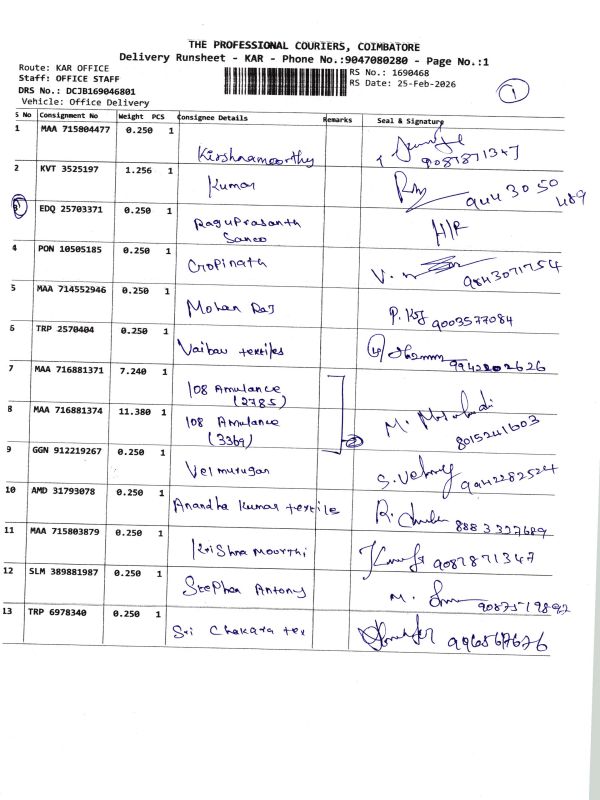 THE PROFESSIONAL COURIERS, COIMBATORE
Delivery Runsheet - KAR - Phone No.:9047080280 - Page No.:1
Route: KAR OFFICE
Staff: OFFICE STAFF
DRS No.: DCJB169046801
Vehicle: Office Delivery
RS No.: 1690468
RS Date: 25-Feb-2026
1
S No Consignment No Weight PCS Consignee Details Remarks Seal & Signature
1 MAA 715804477 0.250 1 Kirshnamoorthy 9087871347
2 KVT 3525197 1.256 1 Kumar 9443050489
3 EDQ 25703371 0.250 1 RaguPrasanth Sanco H/R
4 PON 10505185 0.250 1 Gopinath 9843071754
5 MAA 714552946 0.250 1 Mohan Raj 9003577084
6 TRP 2570404 0.250 1 Vaibav textiles 9942202626
7 MAA 716881371 7.240 1 108 Amulance (2785)
8 MAA 716881374 11.380 1 108 Amulance (3369) 2 8015241603
9 GGN 912219267 0.250 1 Velmurugan 9942282524
10 AMD 31793078 0.250 1 Anandha Kumar textile 8883327689
11 MAA 715803879 0.250 1 Krishna Mourthi 9087871347
12 SLM 389881987 0.250 1 Stephen Antony 9087519892
13 TRP 6978340 0.250 1 Sri Chakara tex 996567676